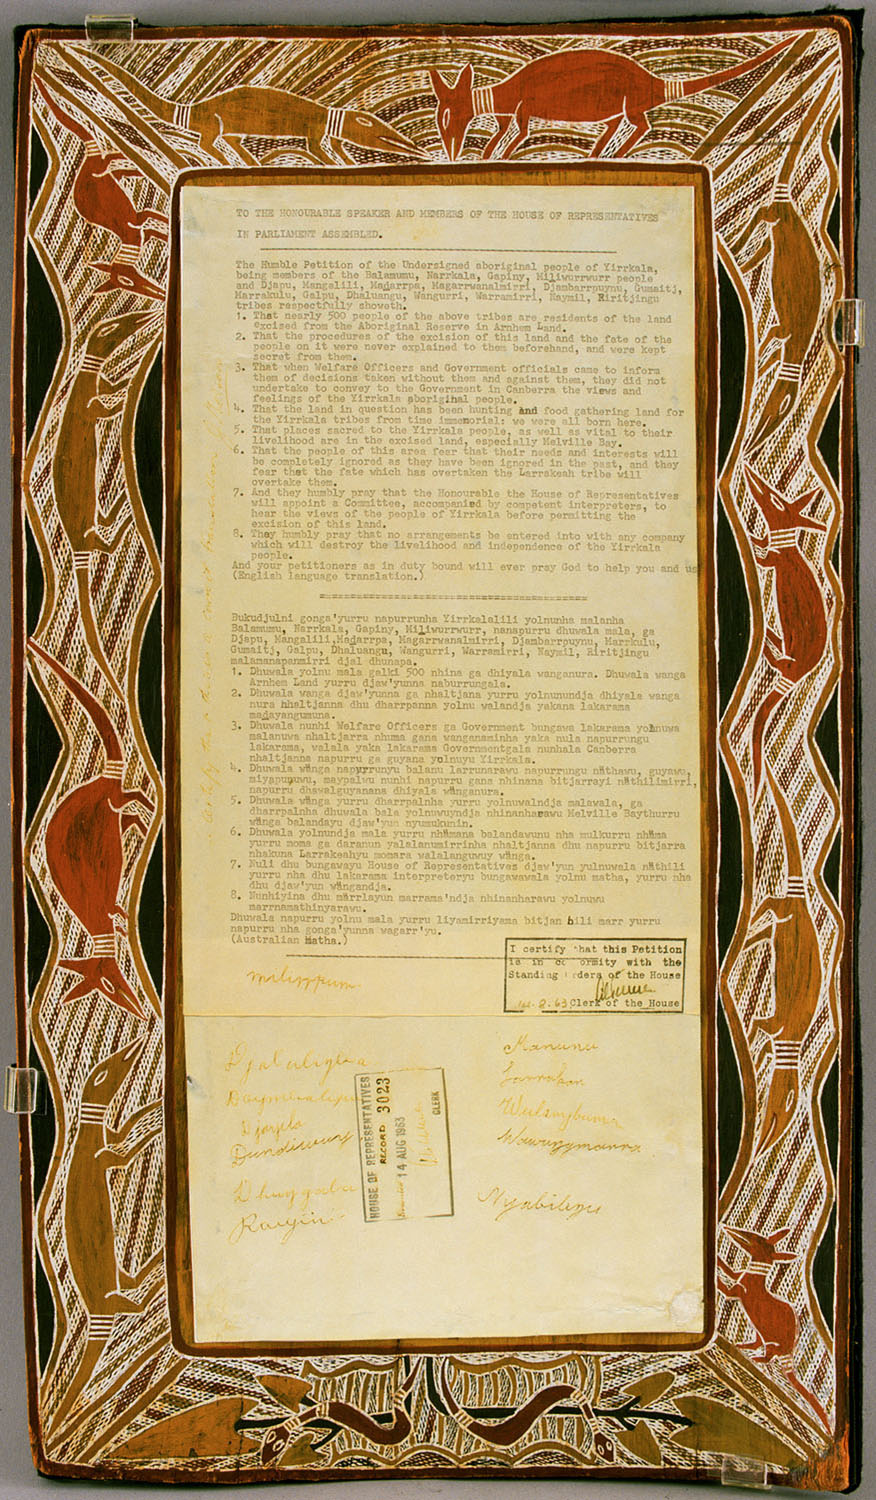 TO THE HONOURABLE SPEAKER AND MEMBERS OF THE HOUSE OF REPRESENTATIVES
IN PARLIAMENT ASSEMBLED.
The Humble Petition of the Undersigned aboriginal people of Yirrkala,
being members of the Balamumu, Narrkala, Gapiny, Miliwurrwurr people
and Djapu, Mangalili, Madarrpa, Magarrwanalmirri, Djambarrpuynu, Gumaitj,
Marrakulu, Galpu, Dhaluangu, Wangurri, Warramirri, Naymil, Riritjingu
tribes respectfully showeth.
1. That nearly 500 people of the above tribes are residents of the land
excised from the Aboriginal Reserve in Arnhem Land.
2. That the procedures of the excision of this land and the fate of the
people on it were never explained to them beforehand, and were kept
secret from them.
3. That when Welfare Officers and Government officials came to inform
them of decisions taken without them and against them, they did not
undertake to convey to the Government in Canberra the views and
feelings of the Yirrkala aboriginal people.
4. That the land in question has been hunting and food gathering land for
the Yirrkala tribes from time immemorial: we were all born here.
5. That places sacred to the Yirrkala people, as well as vital to their
livelihood are in the excised land, especially Melville Bay.
6. That the people of this area fear that their needs and interests will
be completely ignored as they have been ignored in the past, and they
fear that the fate which has overtaken the Larrakeah tribe will
overtake them.
7. And they humbly pray that the Honourable the House of Representatives
will appoint a Committee, accompanied by competent interpreters, to
hear the views of the people of Yirrkala before permitting the
excision of this land.
8. They humbly pray that no arrangements be entered into with any company
which will destroy the livelihood and independence of the Yirrkala
people.
And your petitioners as in duty bound will ever pray God to help you and us
(English language translation.)
Bukudjulni gonga'yurru napurrunha Yirrkalalili yolnunha malanha
Balamumu, Narrkala, Gapiny, Miliwurrwurr, nanapurru dhuwala mala, ga
Djapu, Mangalili, Madarrpa, Magarrwanalmirri, Djambarrpuynu, Marrkulu,
Gumaitj, Galpu, Dhaluangu, Wangurri, Warramirri, Naymil, Riritjingu
malamanapanmirri djal dhunapa.
1. Dhuwala yolnu mala galki 500 nhina ga dhiyala wanganura. Dhuwala wanga
Arnhem Land yurru djaw'yunna naburrungala.
2. Dhuwala wanga djaw'yunna ga nhaltjana yurru yolnunundja dhiyala wanga
nura nhaltjanna dhu dharrpanna yolnu walandja yakana lakarama
madayangumuna.
3. Dhuwala nunhi Welfare Officers ga Government bungawa lakarama yolnuwa
malanuwa nhaltjarra nhuma gana wanganaminha yaka nula napurrungu
lakarama, walala yaka lakarama Governmentgala nunhala Canberra
nhaltjanna napurru ga guyana yolnuyu Yirrkala.
4. Dhuwala wänga napurrunyu balanu larrunarawu napurrungu näthawu, guyawu,
miyapunuwu, maypalwu nunhi napurru gana nhinana bitjarrayi näthilimirri,
napurru dhawalguyanana dhiyala wänganura.
5. Dhuwala wänga yurru dharrpalnha yurru yolnuwalndja malawala, ga
dharrpalnha dhuwala bala yolnuwuyndja nhinanharawu Melville Baythurru
wänga balandayu djaw'yun nyumukunin.
6. Dhuwala yolnundja mala yurru nhämana balandawunu nha mulkurru nhäma
yurru moma ga daranun yalalanumirrinha nhaltjanna dhu napurru bitjarra
nhakuna Larrakeahyu momara walalanguwuy wänga.
7. Nuli dhu bungawayu House of Representatives djaw'yun yulnuwala näthili
yurru nha dhu lakarama interpreteryu bungawawala yolnu matha, yurru nha
dhu djaw'yun wängandja.
8. Nunhiyina dhu märrlayun marrama'ndja nhinanharawu yolnuwu
marrnamathinyarawu.
Dhuwala napurru yolnu mala yurru liyamirriyama bitjan bili marr yurru
napurru nha gonga'yunna wagarr'yu.
(Australian Matha.)
I certify that this Petition
is in conformity with the
Standing Orders of the House
Clerk of the House
Milirrpum
Manunu
Larrakan
Wulanybuma
Wawunymarra
Nyabilingu
Djalalingba
Daymbalipu
Djayila
Dundiwuy
Dhuygala
Raiyin
HOUSE OF REPRESENTATIVES
RECORD 3023
14 AUG 1963
CLERK